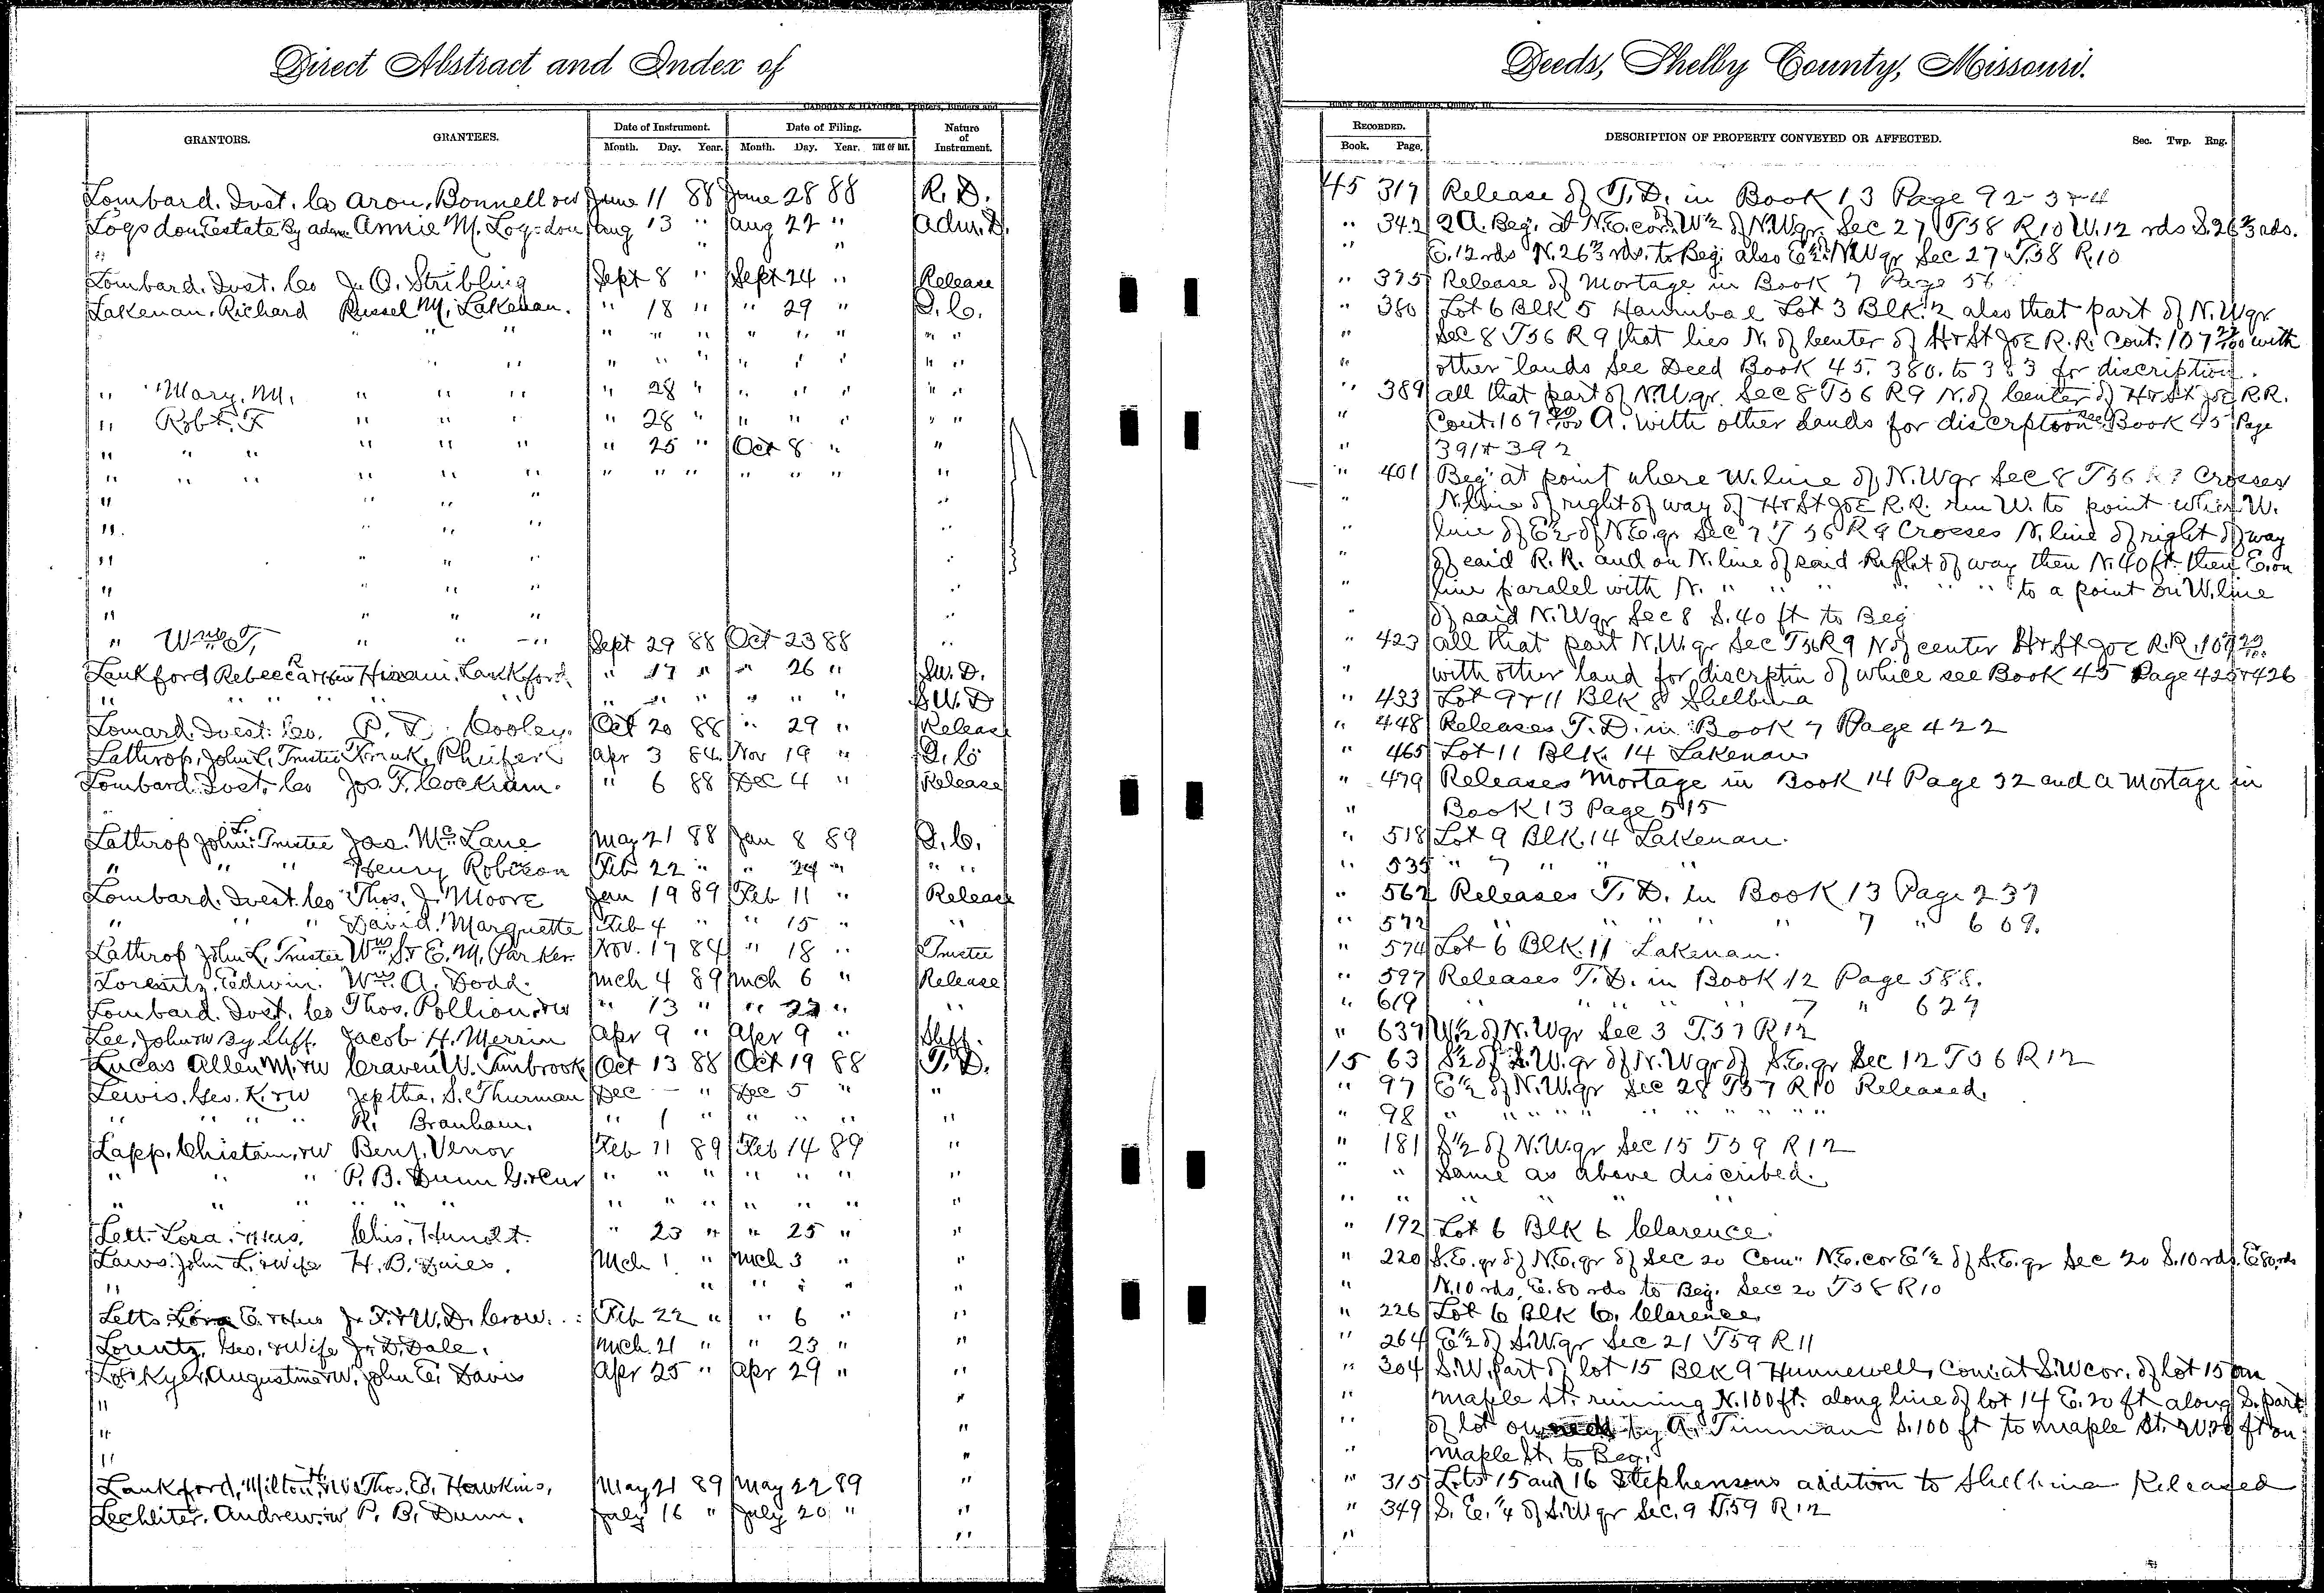 Direct Abstract and Index of
Deeds, Shelby County, Missouri.
CADOGAN & HATCHER, Printers, Binders and
Blank Book Manufacturers, Quincy, Ill.
GRANTORS. GRANTEES. Date of Instrument. Date of Filing. Nature of Instrument.
Month. Day. Year. Month. Day. Year. TIME OF DAY.
RECORDED. DESCRIPTION OF PROPERTY CONVEYED OR AFFECTED. Sec. Twp. Rng.
Book. Page.
Lombard. Invt. Co Aron. Bonnell &W June 11 88 June 28 88 R. D. 45 317 Release of T.D. in Book 13 Page 92-3&4
Logsdon Estate By Adm. Annie M. Logsdon Aug 13 " Aug 22 " Adm. D. " 342 2A. Beg. at N.E. cor. W½ of N.W.qr. Sec 27 T58 R10 W. 12 rds S. 26⅔ rds.
" " " " E. 12 rds N. 26⅔ rds. to Beg. also E½ N.W qr Sec 27 T.58 R.10
Lombard. Invt. Co J. O. Stribling Sept 8 " Sept 24 " Release " 375 Release of Mortage in Book 7 Page 56
Lakenan, Richard Russel M. Lakenan. " 18 " " 29 " Q. C. " 380 Lot 6 Blk 5 Hannibal Lot 3 Blk. 2 also that part of N.W qr
" " " " " " " " " " " " Sec 8 T56 R9 that lies N. of Center of H & St Joe R.R. Cont. 107 22/100 with
" " " " " " " " " " other lands See Deed Book 45. 380. to 383 for discription.
" Mary. M. " " " " 28 " " " " " " " 389 all that part of N.W.qr. Sec 8 T56 R9 N. of Center of H & St Joe R.R.
" Robt. F " " " " 28 " " " " " " " Cont. 107 A. with other lands for discrption see Book 45 Page
" " " " " " " 25 " Oct 8 " " " 391 & 392
" " " " " " " " " " " " " " 401 Beg at point where W. line of N.W qr Sec 8 T56 R9 Crosses
" " " " " " N. line of right of way of H & St Joe R.R. run W. to point where W.
" " " " " " line of E½ of N.E. qr Sec 7 T 56 R 9 Crosses N. line of right of way
" " " " " " of said R.R. and on N. line of said Right of way then N. 40 ft. then E. on
" " " " " " line paralel with N. " " " " " " to a point on W. line
" " " " " of said N.W qr Sec 8 S. 40 ft to Beg
" Wm T, " " " Sept 29 88 Oct 23 88 " " 423 all that part N.W. qr Sec T56 R9 N of center H & St Joe R.R. 107
" with other land for discrptin of which see Book 45 Page 425 & 426
Lankford Rebecca Hiram. Lankford. " 17 " " 26 " Q.W. D.
" " " " " " " " " " S.W. D " 433 Lot 9 & 11 Blk 8 Shelbina
Lomard. Invest. Co. P. T. Cooley. Oct 20 88 " 29 " Release " 448 Releases T.D. in Book 7 Page 422
Lathrop, John L. Trustee Frank. Pheifer Apr 3 84. Nov 19 " Q. C " 465 Lot 11 Blk. 14 Lakenan
Lombard. Invt. Co Jos. F. Cockram. " 6 88 Dec 4 " Release " 479 Releases Mortage in Book 14 Page 32 and a Mortage in
" Book 13 Page 515
Lathrop John L. Trustee Jas. Mc Lane May 21 88 Jan 8 89 Q. C. " 518 Lot 9 Blk. 14 Lakenan.
" " " Henry Robison Feb 22 " " 24 " " " " 535 " 7 " " "
Lombard. Invest. Co Thos. J. Moore Jan 19 89 Feb 11 " Release " 562 Releases T. D. in Book 13 Page 237
" " " David. Marquette Feb 4 " " 15 " " " 572 " " " " " 7 " 609.
Lathrop John L. Trustee Wm S. & E. M. Parker. Nov. 17 84 " 18 " Trustee " 574 Lot 6 Blk. 11 Lakenan.
Lorentz, Edwin. Wm. A. Dodd. Mch 4 89 Mch 6 " Release " 597 Releases T.D. in Book 12 Page 588.
Lombard. Invt. Co Thos. Pollion. &W " 13 " " 22 " " " 619 " " " " " 7 " 627
Lee, John &W By Shff. Jacob H. Merrin Apr 9 " Apr 9 " Shff. " 637 W½ of N.W qr Sec 3 T.57 R12
Lucas Allen M. &W Craven W. Timbrook Oct 13 88 Oct 19 88 T. D. 15 63 S½ of S.W. qr of N.W qr of S.E. qr Sec 12 T56 R12
Lewis, Geo. K. &W Jeptha. S. Thurman Dec — " Dec 5 " " " 97 E½ of N.W. qr Sec 28 T57 R10 Released.
" " " " R. Branham. " 1 " " " " " " 98 " " " " " " " " " "
Lapp. Christain, &W Benj. Venor Feb 11 89 Feb 14 89 " " 181 S½ of N.W. qr Sec 15 T59 R12
" " " P. B. Dunn G. & Cur " " " " " " " " " Same as above discribed.
" " " " " " " " " " " " " " " " " "
Lett. Lora. & Hus. Chis. Hunolt. " 23 " " 25 " " " 192 Lot 6 Blk 6 Clarence.
Laws. John L. & Wife H. B. Davies. Mch 1 " Mch 3 " " " 220 S.E. qr of N.E. qr of Sec 20 Com. N.E. cor E½ of S.E. qr Sec 20 S. 10 rds. E 80 rds
" " " " " " N. 10 rds, E. 80 rds to Beg. Sec 20 T58 R10
Letts Lora E. & Hus J. F. & W. D. Crow. Feb 22 " " 6 " " " 226 Lot 6 Blk 6. Clarence
Lorentz, Geo. & Wife J. D. Dale. Mch. 21 " " 23 " " " 264 E½ of S.W. qr Sec 21 T59 R11
Augustine &W. John E. Davis Apr 25 " Apr 29 " " " 304 S.W. part of lot 15 Blk 9 Hunnewell, Com. at S.W cor. of lot 15 on
" " " maple St. running N. 100 ft. along line of lot 14 E. 20 ft along S. part
" " " of lot owned by A. Timman S. 100 ft to maple St. W. 20 ft on
" " " maple St. to Beg.
Lankford, Milton H. &W Thos. Ed. Hawkins, May 21 89 May 22 89 " " 315 Lots 15 and 16 Stephensons addition to Shelbina Released
Lechliter, Andrew &W P. B. Dunn. July 16 " July 20 " " " 349 S. E. ¼ of S.W qr Sec. 9 T.59 R12
" "